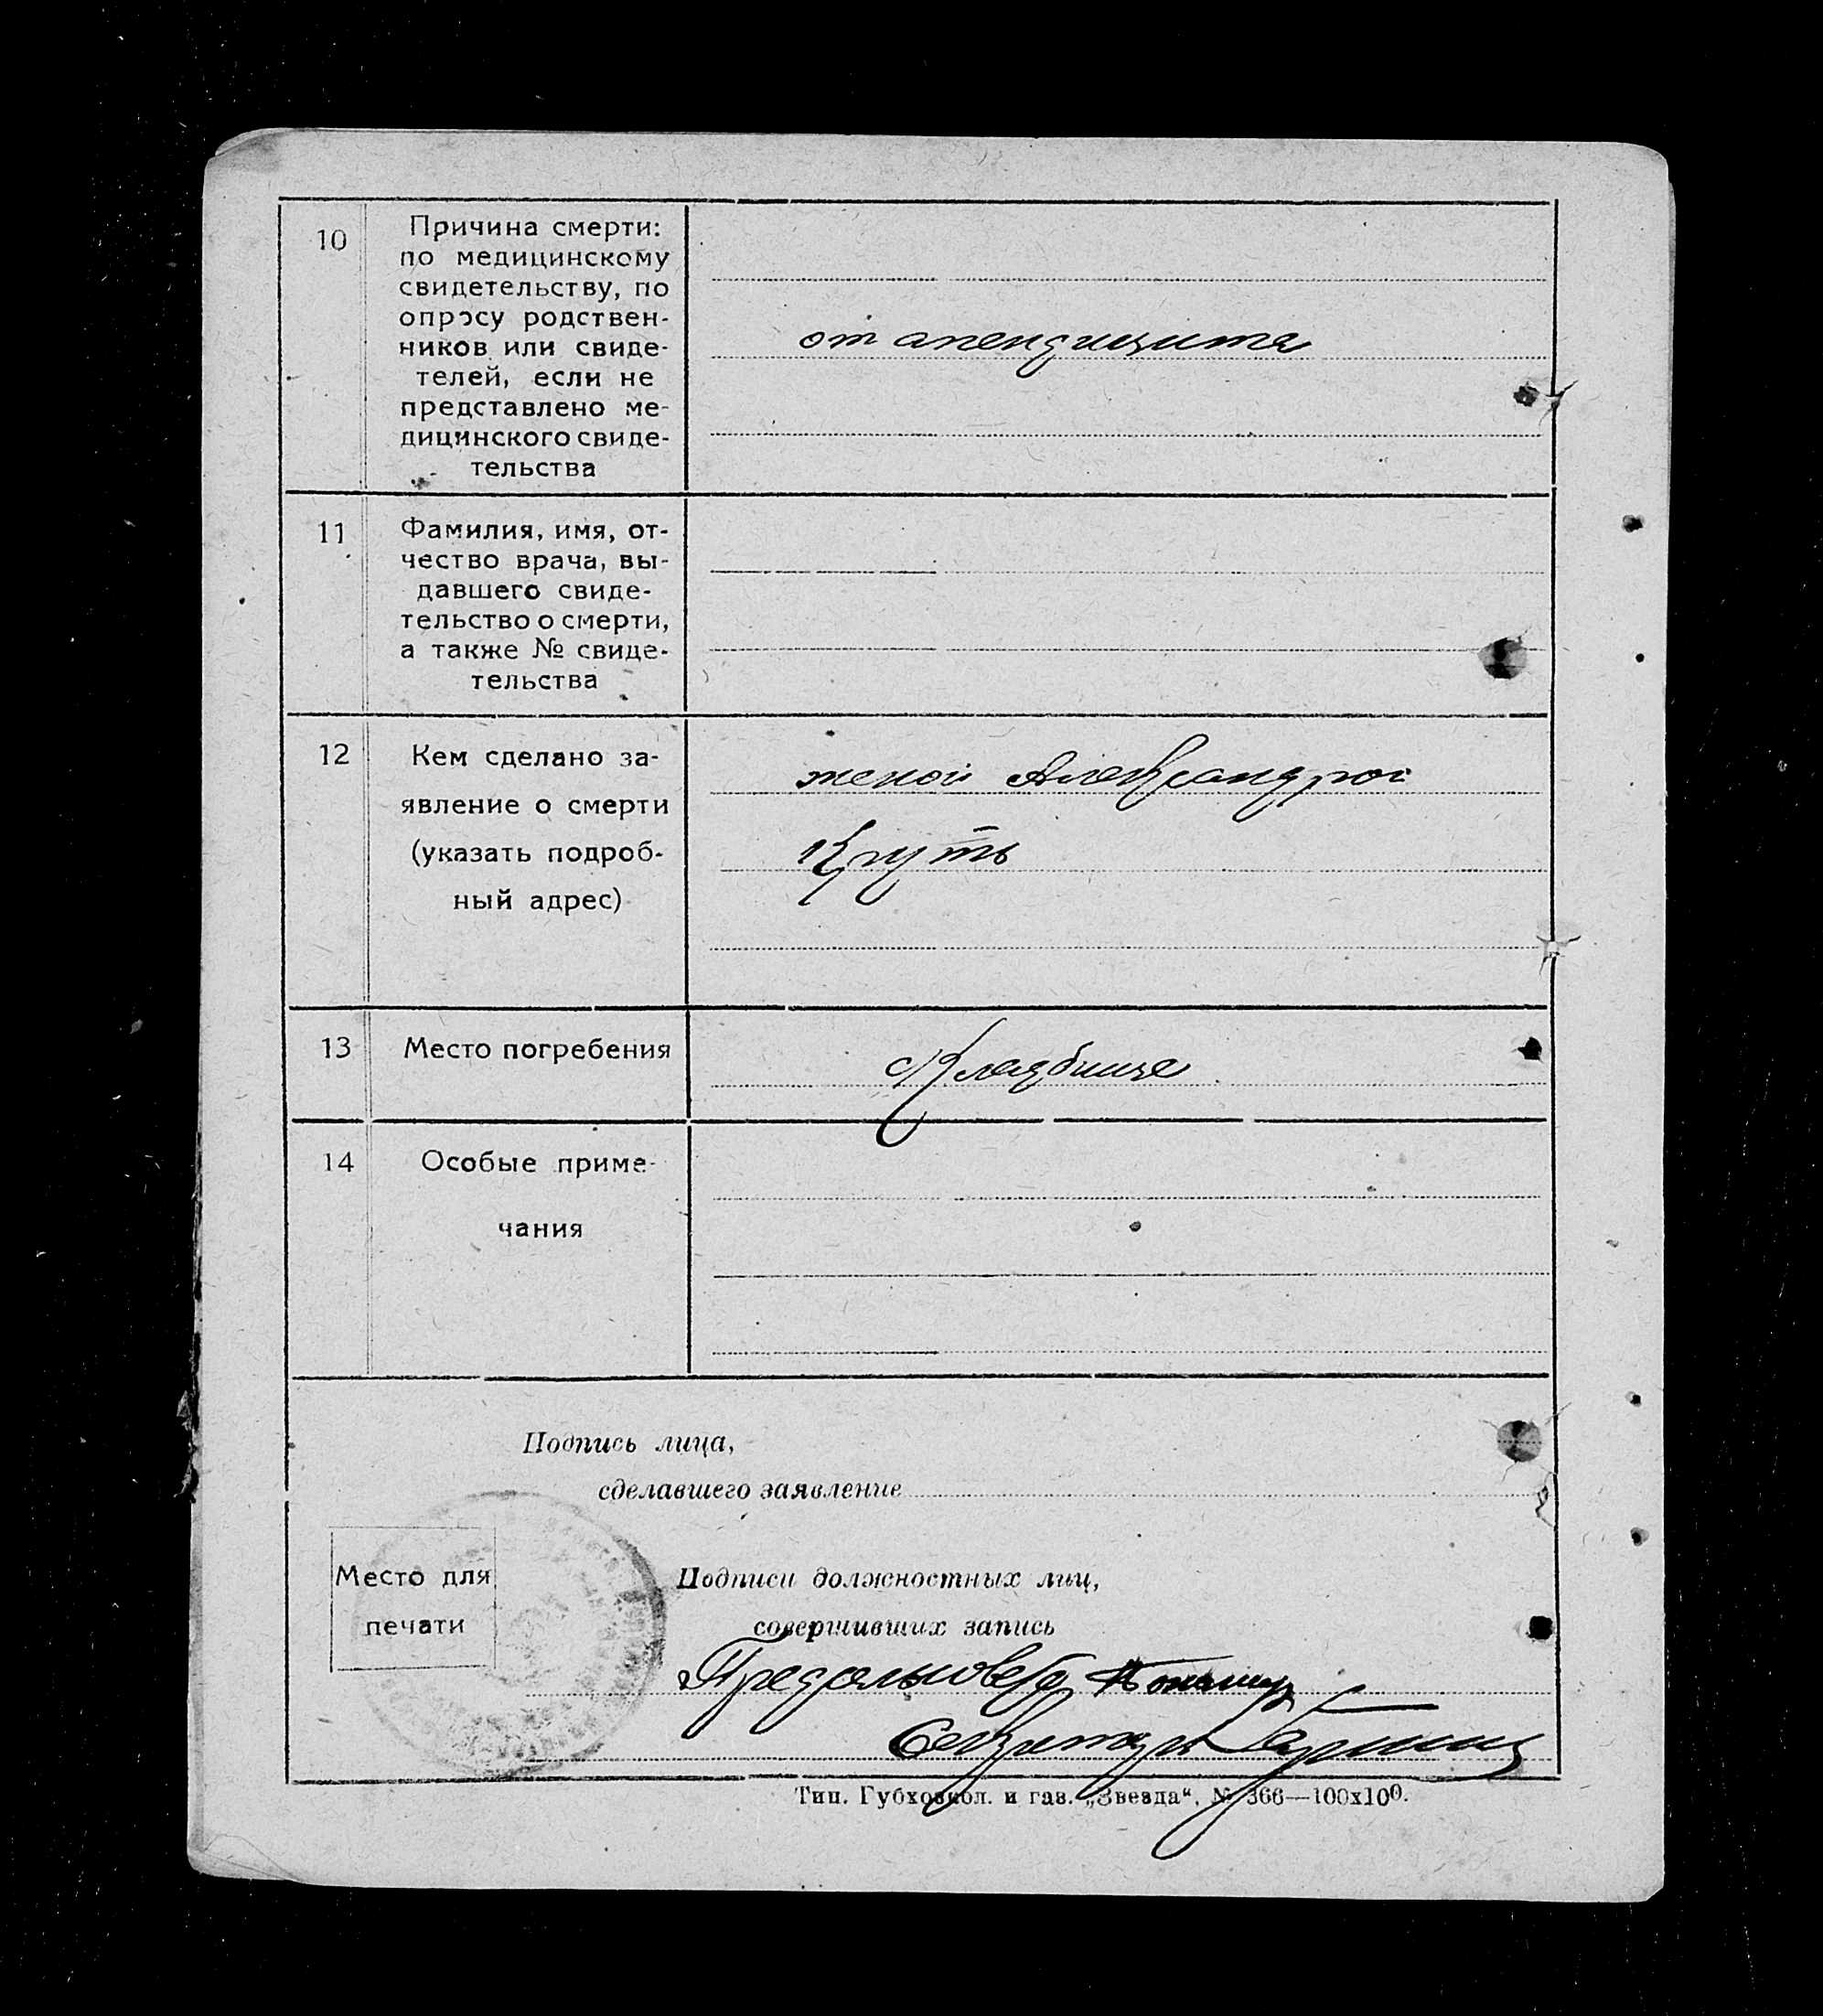 10
Причина смерти:
по медицинскому
свидетельству, по
опросу родствен-
ников или свиде-
телей, если не
представлено ме-
дицинского свиде-
тельства
от апендицита
11
Фамилия, имя, от-
чество врача, вы-
давшего свиде-
тельство о смерти,
а также № свиде-
тельства
12
Кем сделано за-
явление о смерти
(указать подроб-
ный адрес)
женой Александрой
Круть
13
Место погребения
Кладбище
14
Особые приме-
чания
Подпись лица,
сделавшего заявление
Место для
печати
Подписи должностных лиц,
совершивших запись
Секретарь
Тип. Губхозкол. и газ. „Звезда“, № 366—100х100.